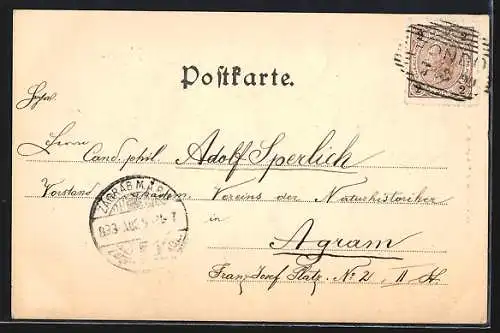 Postkarte.
Herrn
Cand. phil. Adolf Sperlich
Vorstand d. akadem. Vereins der Naturhistoriker
in
Agram
Franz Josef Platz. No 2, II. St.
ZAGRAB